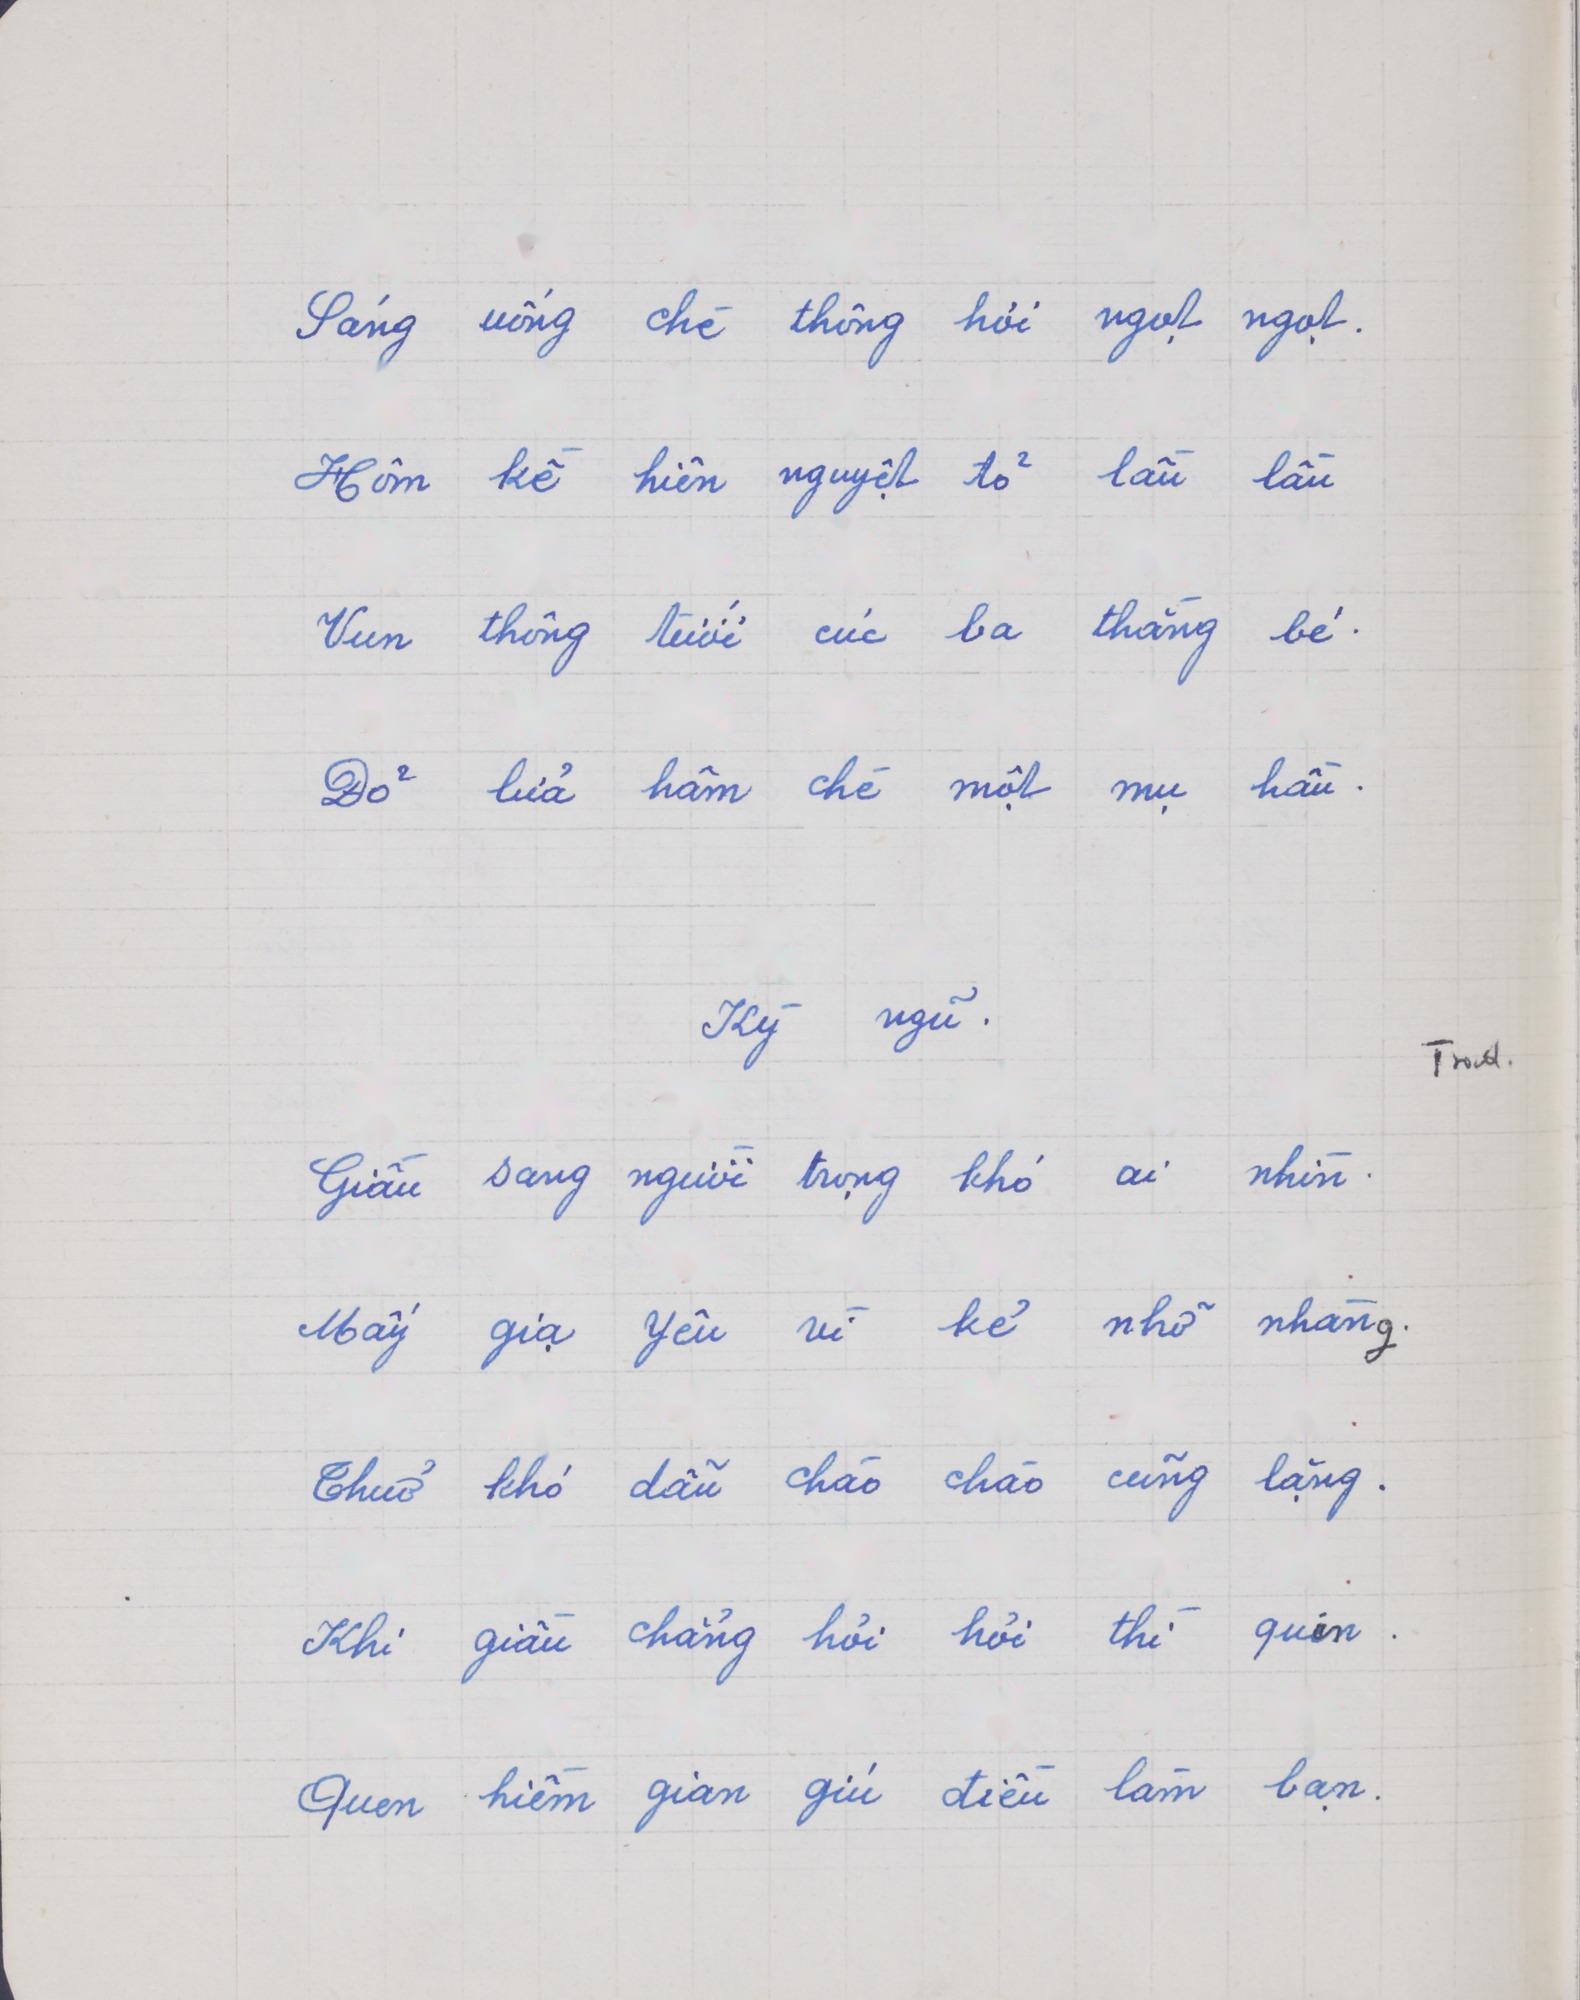 Sáng uống chè thông hỏi ngọt ngọt.
Hôm kề hiên nguyệt tỏ lầu lầu
Vun thông tưới cúc ba thằng bé.
Đỏ lửa hâm chè một mụ hầu.
Kỳ ngũ.
Trad.
Giầu sang người trọng khó ai nhìn.
Mấy giạ yêu vì kẻ nhỡ nhàng.
Thuở khó dẫu chào chào cũng lặng.
Khi giầu chẳng hỏi hỏi thì quin.
Quen hiềm gian giú điều làm bạn.